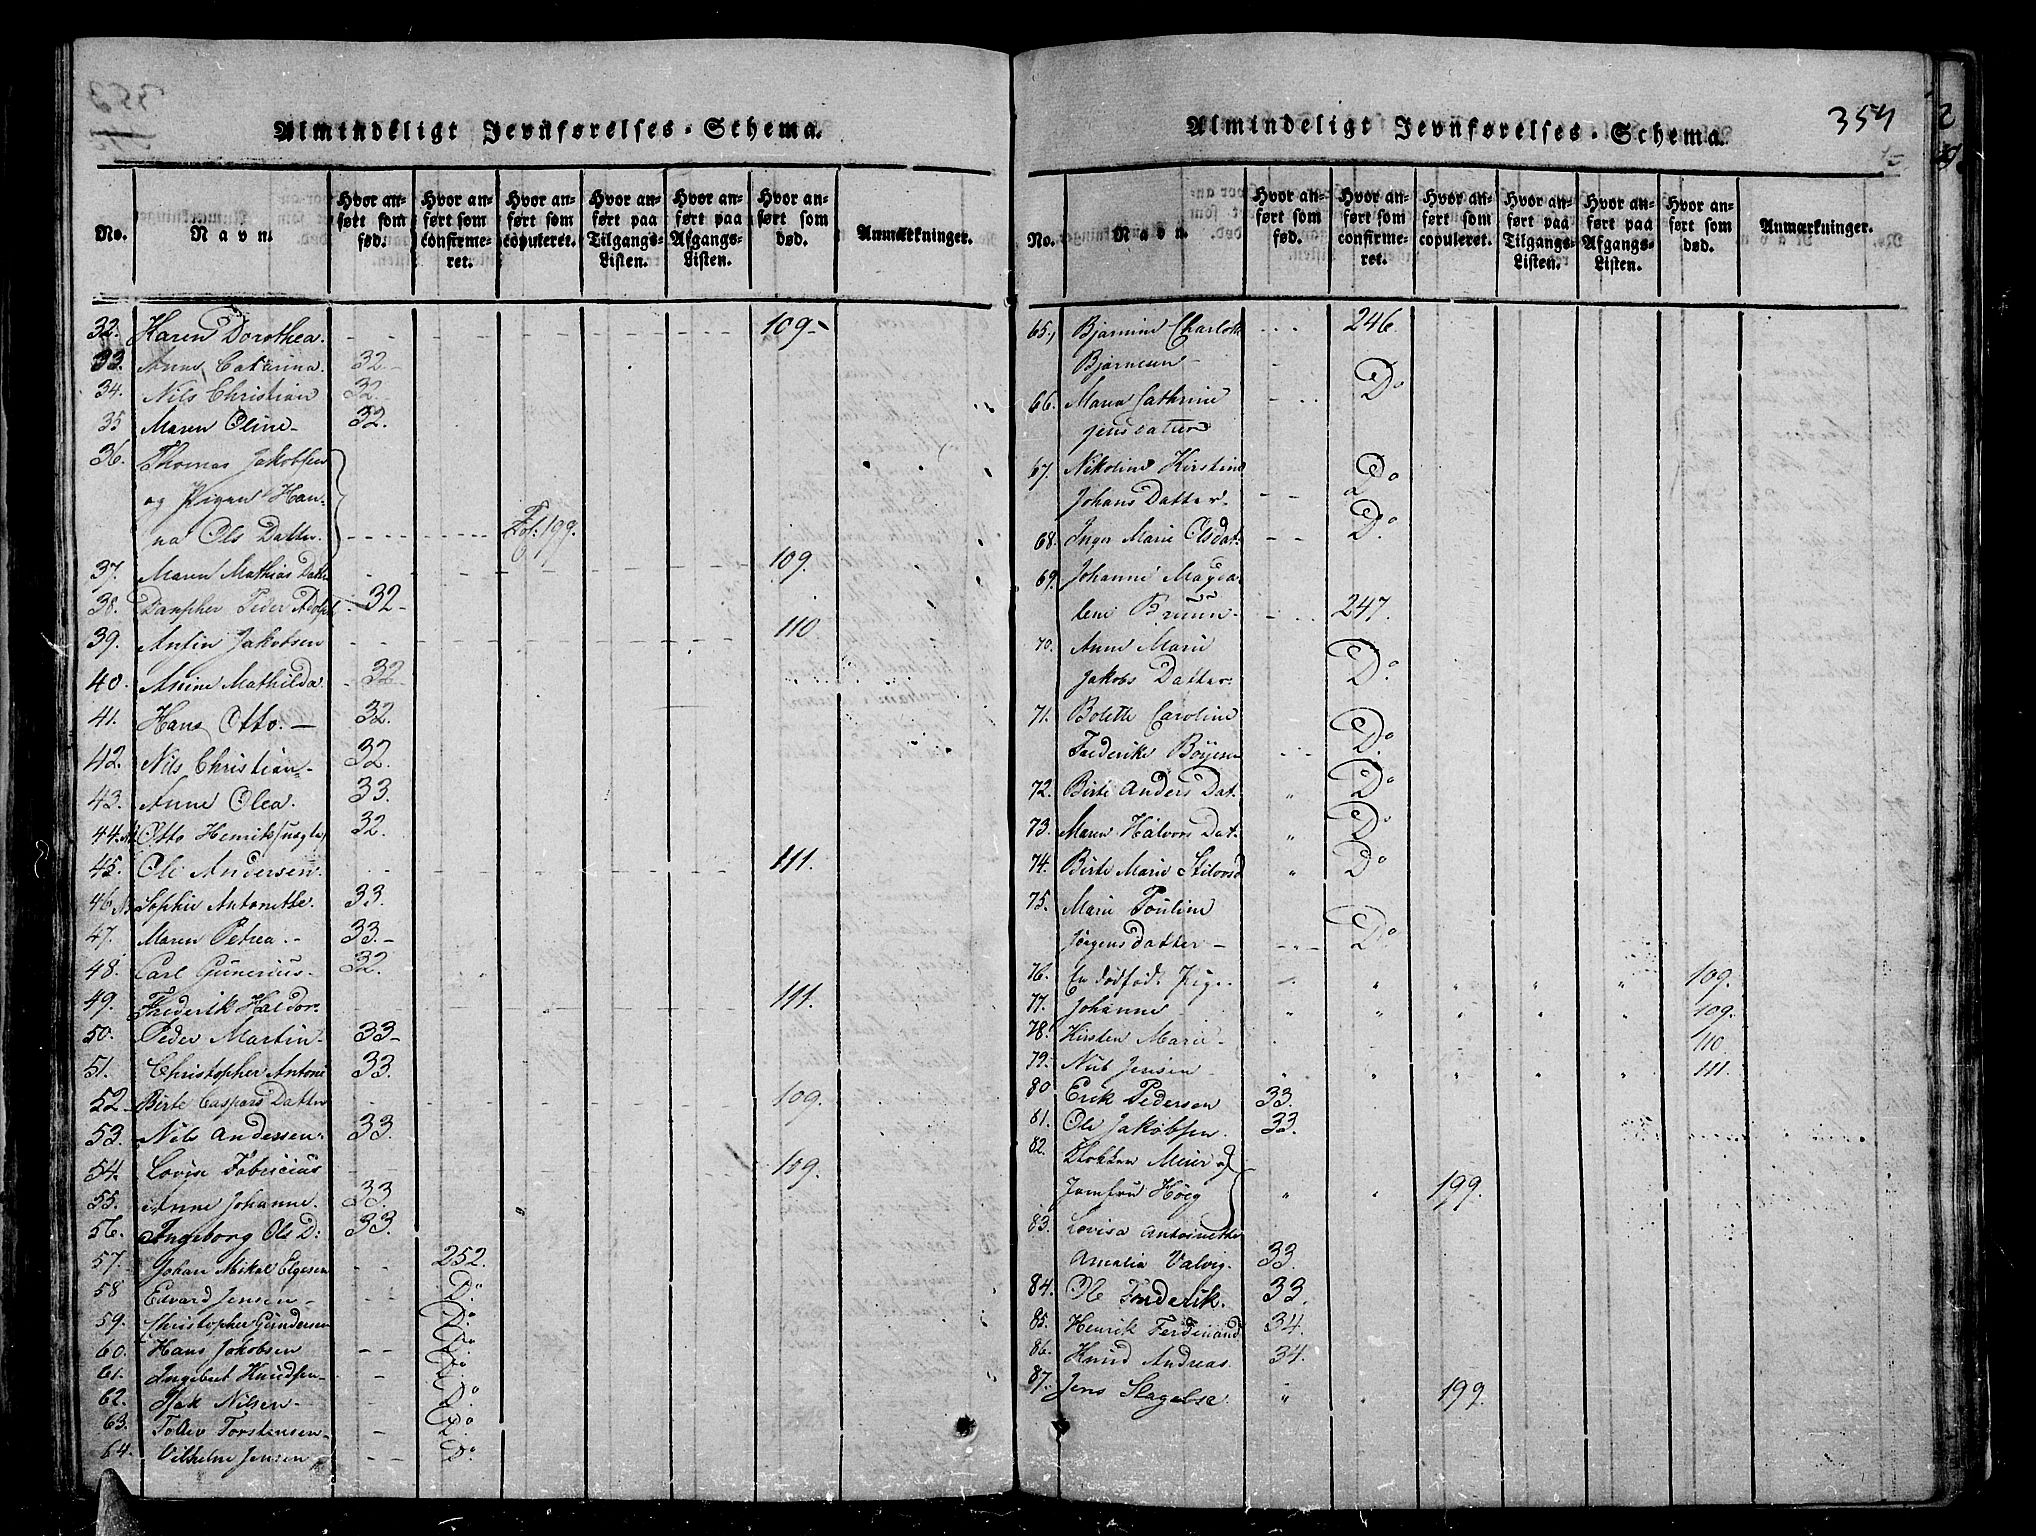 Almindeligt Jevnførelses-Schema.
No. Navn Hvor anført som fød. Hvor anført som confirmeret. Hvor anført som copuleret. Hvor anført paa Tilgangs-Listen. Hvor anført paa Afgangs-Listen. Hvor anført som død. Anmærkninger.
32. Karen Dorothea. 109-
33. Anne Catarina. 32-
34. Nils Christian 32.
35 Maren Oline- 32.
36. Thomas Jakobsen
og Pigen Han-
na Ols Datter. Fol: 199.
37. Maren Mathias Datter 109.
38. Peder Adolph 32-
39. Antin Jakobsen 110
40. Mathilda. 32
41. Hans Otto. - 32.
42. Nils Christian- 32.
43. Anne Olea. 33.
44. Otto Henrik (uægte) 32.
45. Ole Andersen. 111.
46 Sophie Antonette. 33.
47. Maren Petrea. - 33.-
48. Carl Gunerius. 32.
49. Frederik Haldor. 111.
50. Peder Martin- 33-
51. Christopher Antoni 33.
52- Birte Caspars Datter 109.
53. Nils Andersen. 33.
54. Lovise Fabricius 109.
55. Anne Johanne. 33.
56. Ingeborg Ols D: 33.
57. Johan Mikal Elgesen 252.
58 Edvard Jensen- Do
59. Christopher Gundersen Do
60. Hans Jakobsen Do
61. Ingebret Knudsen- Do
62. Isak Nilsen- Do
63. Tollev Torstensen- Do
64. Vilhelm Jensen Do
354
Almindeligt Jevnførelses-Schema.
No. Navn Hvor anført som fød. Hvor anført som confirmeret. Hvor anført som copuleret. Hvor anført paa Tilgangs-Listen. Hvor anført paa Afgangs-Listen. Hvor anført som død. Anmærkninger.
65, Bjarnine Charlotte 246.
Bjarnesen-
66. Maren Cathrine Do
Jensdatter
67. Nikoline Kirstine Do
Johans Datter.
68. Inger Marie Olsdat. Do
69. Johanne Magda-
lene Bruun- 247.
70. Anne Marie
Jakobs Datter. Do
71. Bolette Caroline
Frederike Böyesen Do
72. Birte Anders Dat. " Do
73. Maren Halvors Dat. " Do
74. Birte Marie " Do
75. Marie Pouline
Jörgensdatter- Do
76. En dødfød Pige. " " " " " 109.
77. Johanne " " " " " 109.
78. Kirsten Marie- 110
79. Nils Jensen- " " " " " 111.
80 Erik Pedersen 33.
81. Ole Jakobsen. 33.
82. Meier og
Jomfru Höeg " " 199.
83. Lovisa Antoinette
Amalia Valvig. 33.
84. Ole Frederik. 33.
85. Henrik Ferdinand 34.
86. Knud Andreas. 34.
87. Jens Slagelse " " 199.